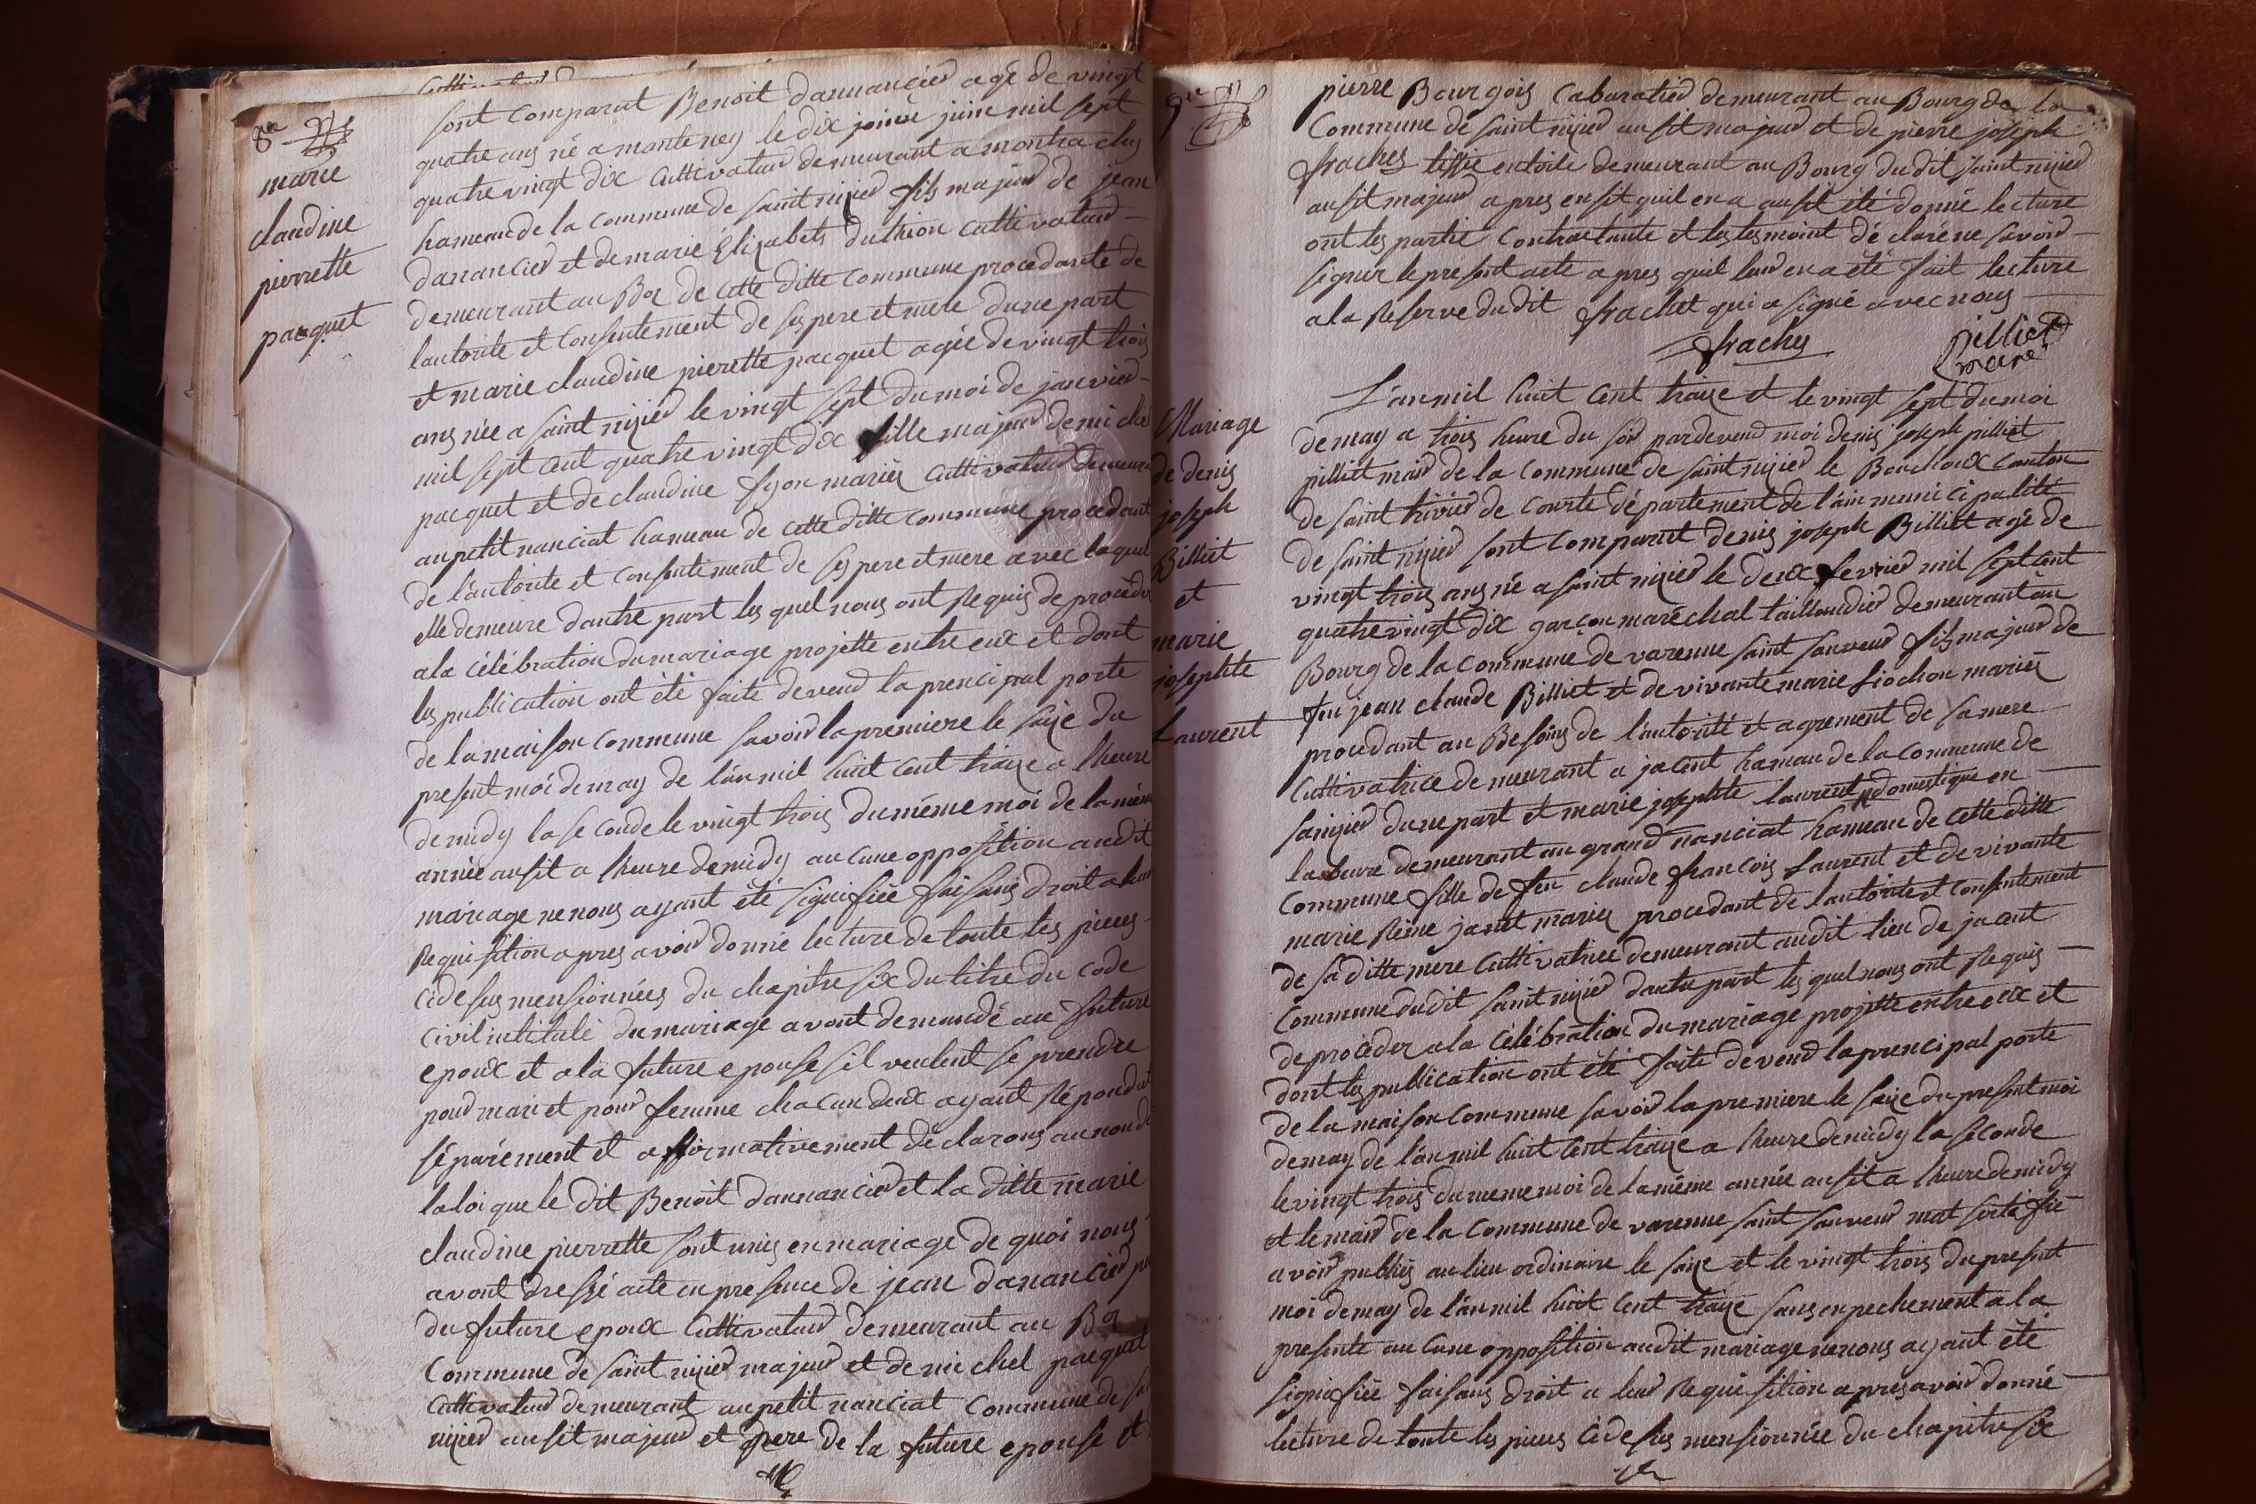 8me
marie
claudine
pierrette
pacquet
sont comparut Benoit dananciev agé de vingt
quatre ans né a monteney le dix juin mil sept
quatre vingt dix Cultivateur demeurant a montrachy
hameau de la commune de saint nizier fils majeur de jean
dananciev et de marie Elizabets duthion cultivateur
demeurant au Boz de cette ditte commune procedante de
lautorite et consentement de ses pere et mere dune part
et marie claudine pierette pacquet agée de vingt trois
ans née a saint nizier le vingt sept du moi de janvier
mil sept cent quatre vingt dix fille majeur de michel
pacquet et de claudine fyon mariés cultivateur demeurant
au petit nanciat hameau de cette ditte commune procedant
de l'autorite et consentement de ses pere et mere avec lequel
elle demeure dautre part les quel nous ont Requis de procéder
a la célébration du mariage projette entre eux et dont
les publication ont été faite devend la prencipal porte
de la maison commune savoir la premiere le saize du
present moi de may de l'an mil huit cent traize a lheure
de midy la seconde le vingt trois du méme moi de la méme
année ausit a lheure de midy aucune opposition audit
mariage ne nous ayant été signifiée faisans droit a leur
Requisition apres avoir donné lecture de toute les pieces
cidesus mensionnées du chapitre six du titre du code
civil intitulé du mariage avont demandé au future
epoux et a la future epouse sil veulent se prendre
pour mari et pour femme chacun deux ayant Répondut
séparément et affirmativement déclarons au nom de
la loi que le dit Benoit dannanciev et la ditte marie
claudine pierrette sont unis en mariage de quoi nous
avont dressé acte en presence de jean dananciev
du future epoux Cultivateur demeurant au Boz
commune de saint nizier majeur et de michel pacquet
Cultivateur demeurant au petit nanciat commune de
nizier ausit majeur et pere de la future epouse et
9me
pierre Bourgois Cabaratier demeurant au Bourg de la
Commune de saint nizier ausit majeur et de pierre joseph
frachet tissie en toile demeurant au Bourg dudit saint nizier
ausit majeur apres ensit quil en a ausit été donné lecture
ont les partie contractante et les tesmoint déclaré ne savoir
signer le present acte apres quil leur en a été fait lecture
a la Reserve dudit frachet qui a signé avec nous
frachet
pilliet
mare
Mariage
de denis
joseph
Billiet
et
marie
josephte
Laurent
L'an mil huit cent traize et le vingt sept du moi
de may a trois heure du soir pardevend moi denis joseph pilliet
pilliet mair de la commune de saint nizier le Bouchoux canton
de saint trivier de courte département de l'ain municipalité
de saint nizier sont comparut denis joseph Billiet agé de
vingt trois ans né a saint nizier le deux fevrier mil sept cent
quatre vingt dix garçon maréchal taillandier demeurant au
Bourg de la commune de varenne saint sauveur fils majeur de
feu jean claude Billiet et de vivante marie Liochon mariés
procedant au Besoins de l'autorité et agrement de sa mere
Cultivatrice demeurant a jacent hameau de la commune de
sainizier dune part et marie josephte laurent domestique en
labeure demeurant au grand nanciat hameau de cette ditte
Commune fille de feu claude francois Laurent et de vivante
marie Reine janet mariés procedant de lautorité et consentement
de sa ditte mere cultivatrice demeurant audit lieu de jacent
Commune dudit saint nizier dautre part les quel nous ont Requis
de procéder a la célébration du mariage projette entre eux et
dont les publication ont été faite devend la prencipal porte
de la maison commune savoir la premiere le saize du present moi
de may de l'an mil huit cent traize a lheure de midy la seconde
le vingt trois du meme moi de la méme année ausit a lheure de midy
et le mair de la commune de varenne saint sauveur mat sertifie
avoir publiés au lieu ordinaire le saize et le vingt trois du present
moi de may de l'an mil huit cent traize sans enpechement a la
presente aucune opposition audit mariage ne nous ayant été
signifiée faisans droit a leur Requisition apres avoir donné
lecture de toute les pieces cidesus mensionnée du chapitre six